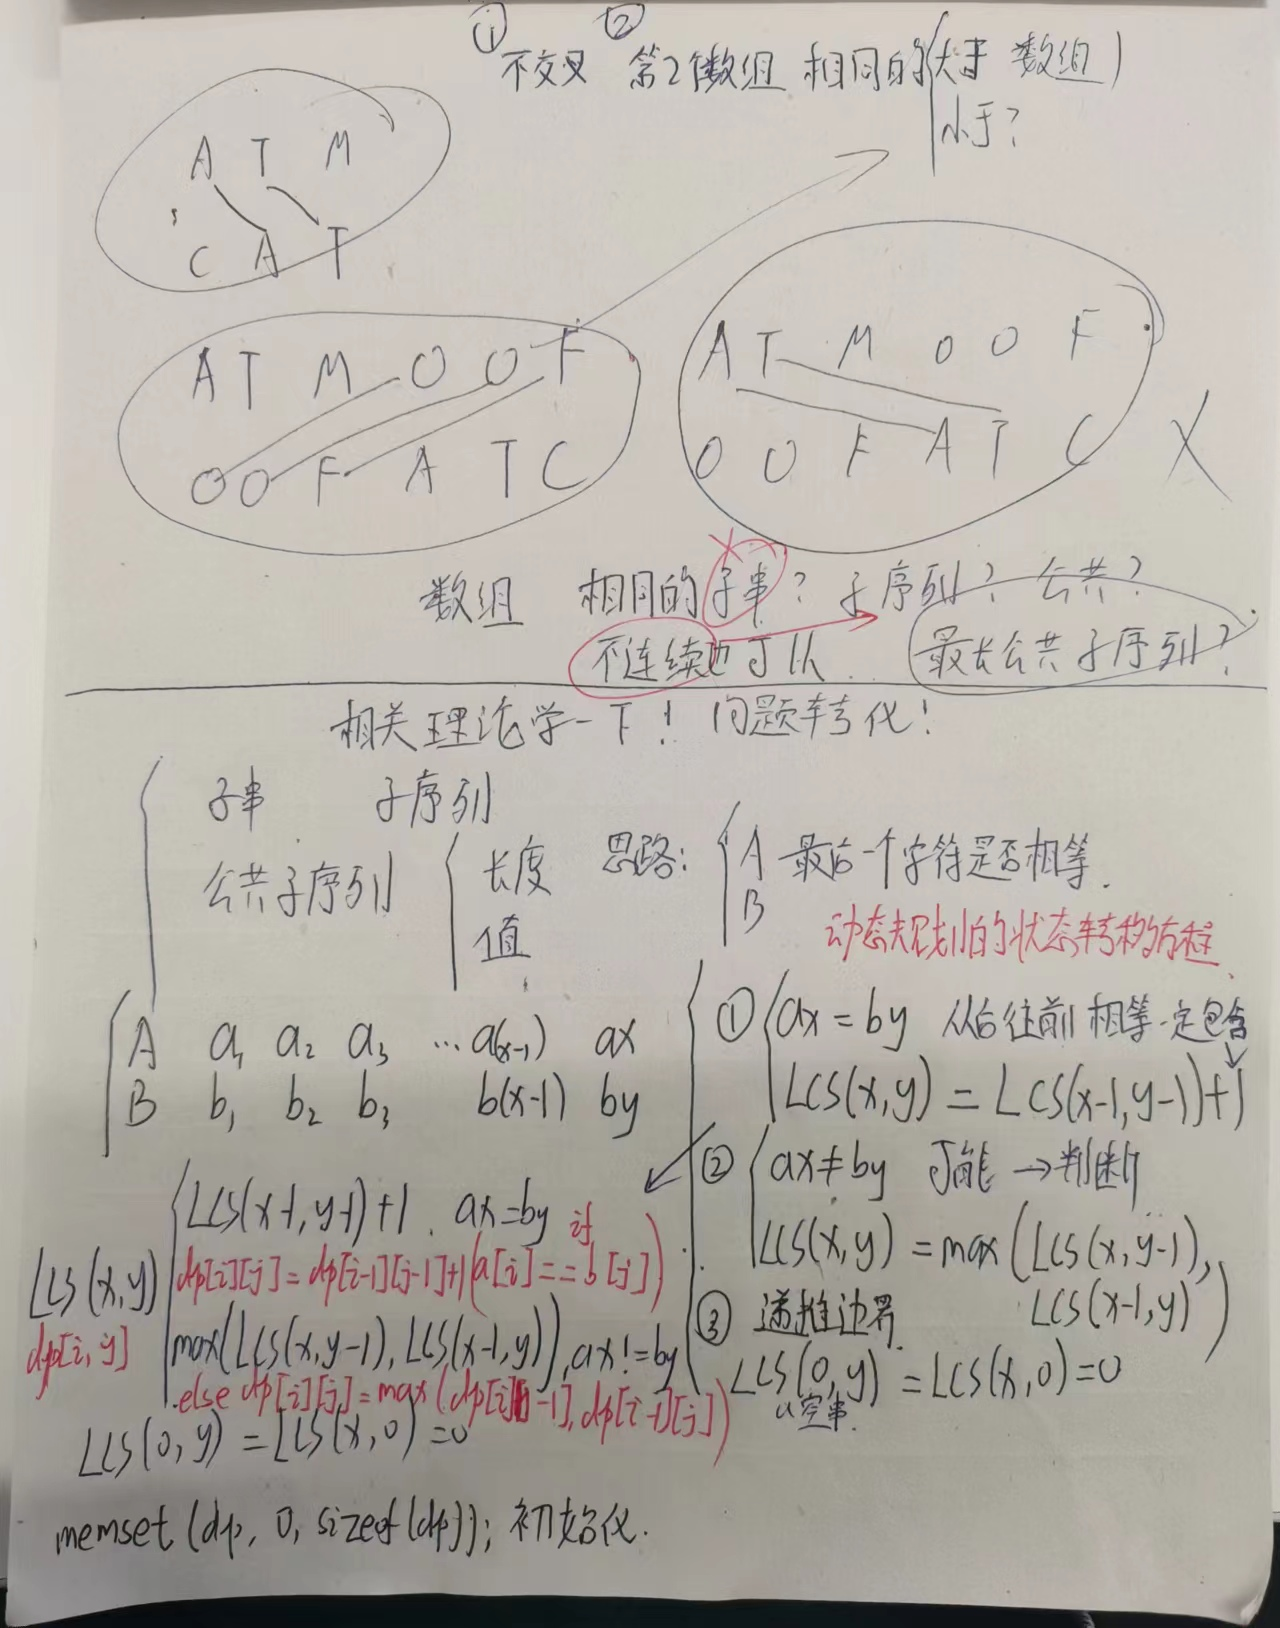 ① ②
不交叉 第2个数组 相同的(大于 数组)
小于?
A T M
C A T
A T M O O F
O O F A T C
A T M O O F
O O F A T C
X
数组 相同的子串? 子序列? 公共?
不连续也可以 最长公共子序列?
相关理论学一下! 问题转化!
子串 子序列
公共子序列 长度
值
思路: A 最后一个字符是否相等.
B
动态规划的状态转移方程
A a1 a2 a3 ...a(x-1) ax
B b1 b2 b3 b(x-1) by
① ax=by 从后往前 相等一定包含
LCS(x,y)=LCS(x-1,y-1)+1
② ax≠by 可能→判断
LCS(x,y)=max(LCS(x,y-1),
LCS(x-1,y))
③ 递推边界
LCS(0,y)=LCS(x,0)=0
空串.
LCS(x,y) LCS(x-1,y-1)+1. ax=by
dp[i,y] dp[i][j]=dp[i-1][j-1]+1 if (a[i]==b[j])
max(LCS(x,y-1),LCS(x-1,y)),ax!=by
else dp[i][j]=max(dp[i][j-1],dp[i-1][j])
LCS(0,y)=LCS(x,0)=0
memset(dp,0,sizeof(dp)); 初始化.